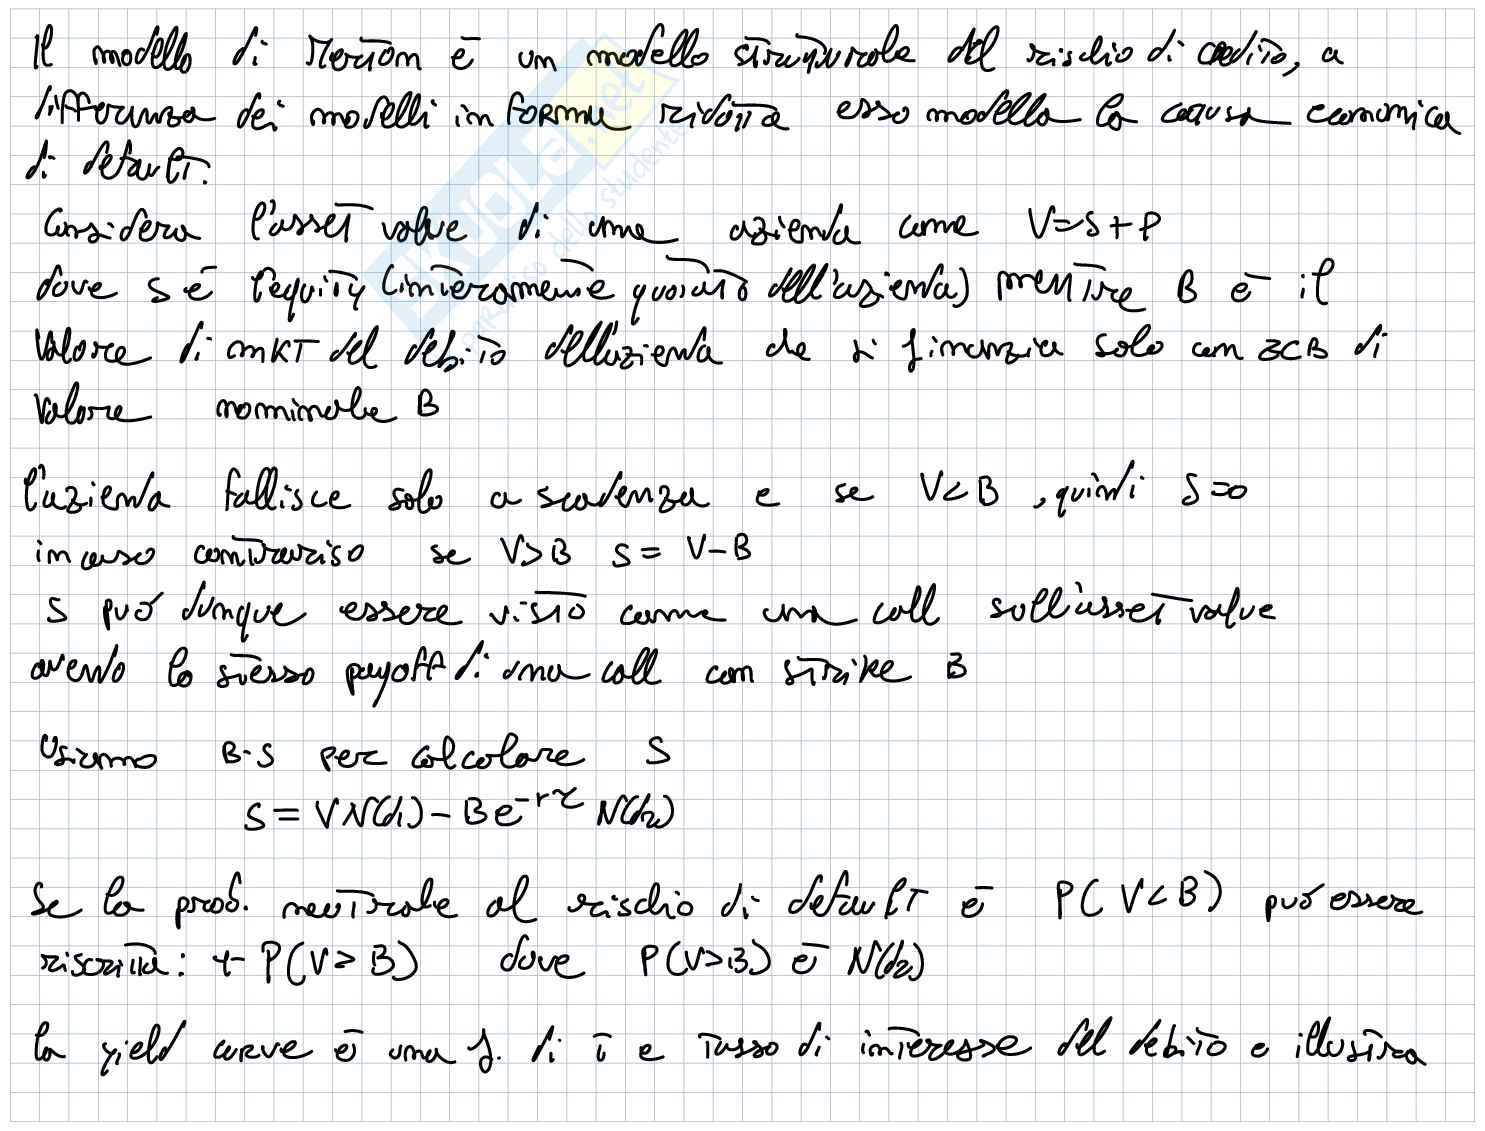 Il modello di Merton è un modello strutturale del rischio di credito, a
differenza dei modelli in forma ridotta esso modella la causa economica
di default.
Considera l'asset value di una azienda come V=S+P
dove S è l'equity (interamente quotato dell'azienda) mentre B è il
valore di mkt del debito dell'azienda che si finanzia solo con ZCB di
valore nominale B
l'azienda fallisce solo a scadenza e se V<B, quindi S=0
in caso contrario se V>B S= V-B
S può dunque essere visto come una call sull'asset value
avendo lo stesso payoff di una call con strike B
Usiamo B-S per calcolare S
S = V N(d1) - B e^-rτ N(d2)
Se la prob. neutrale al rischio di default è P(V<B) può essere
riscritta: 1- P(V>B) dove P(V>B) è N(d2)
la yield curve è una f. di τ e tasso di interesse del debito e illustra
SKUOLA.net